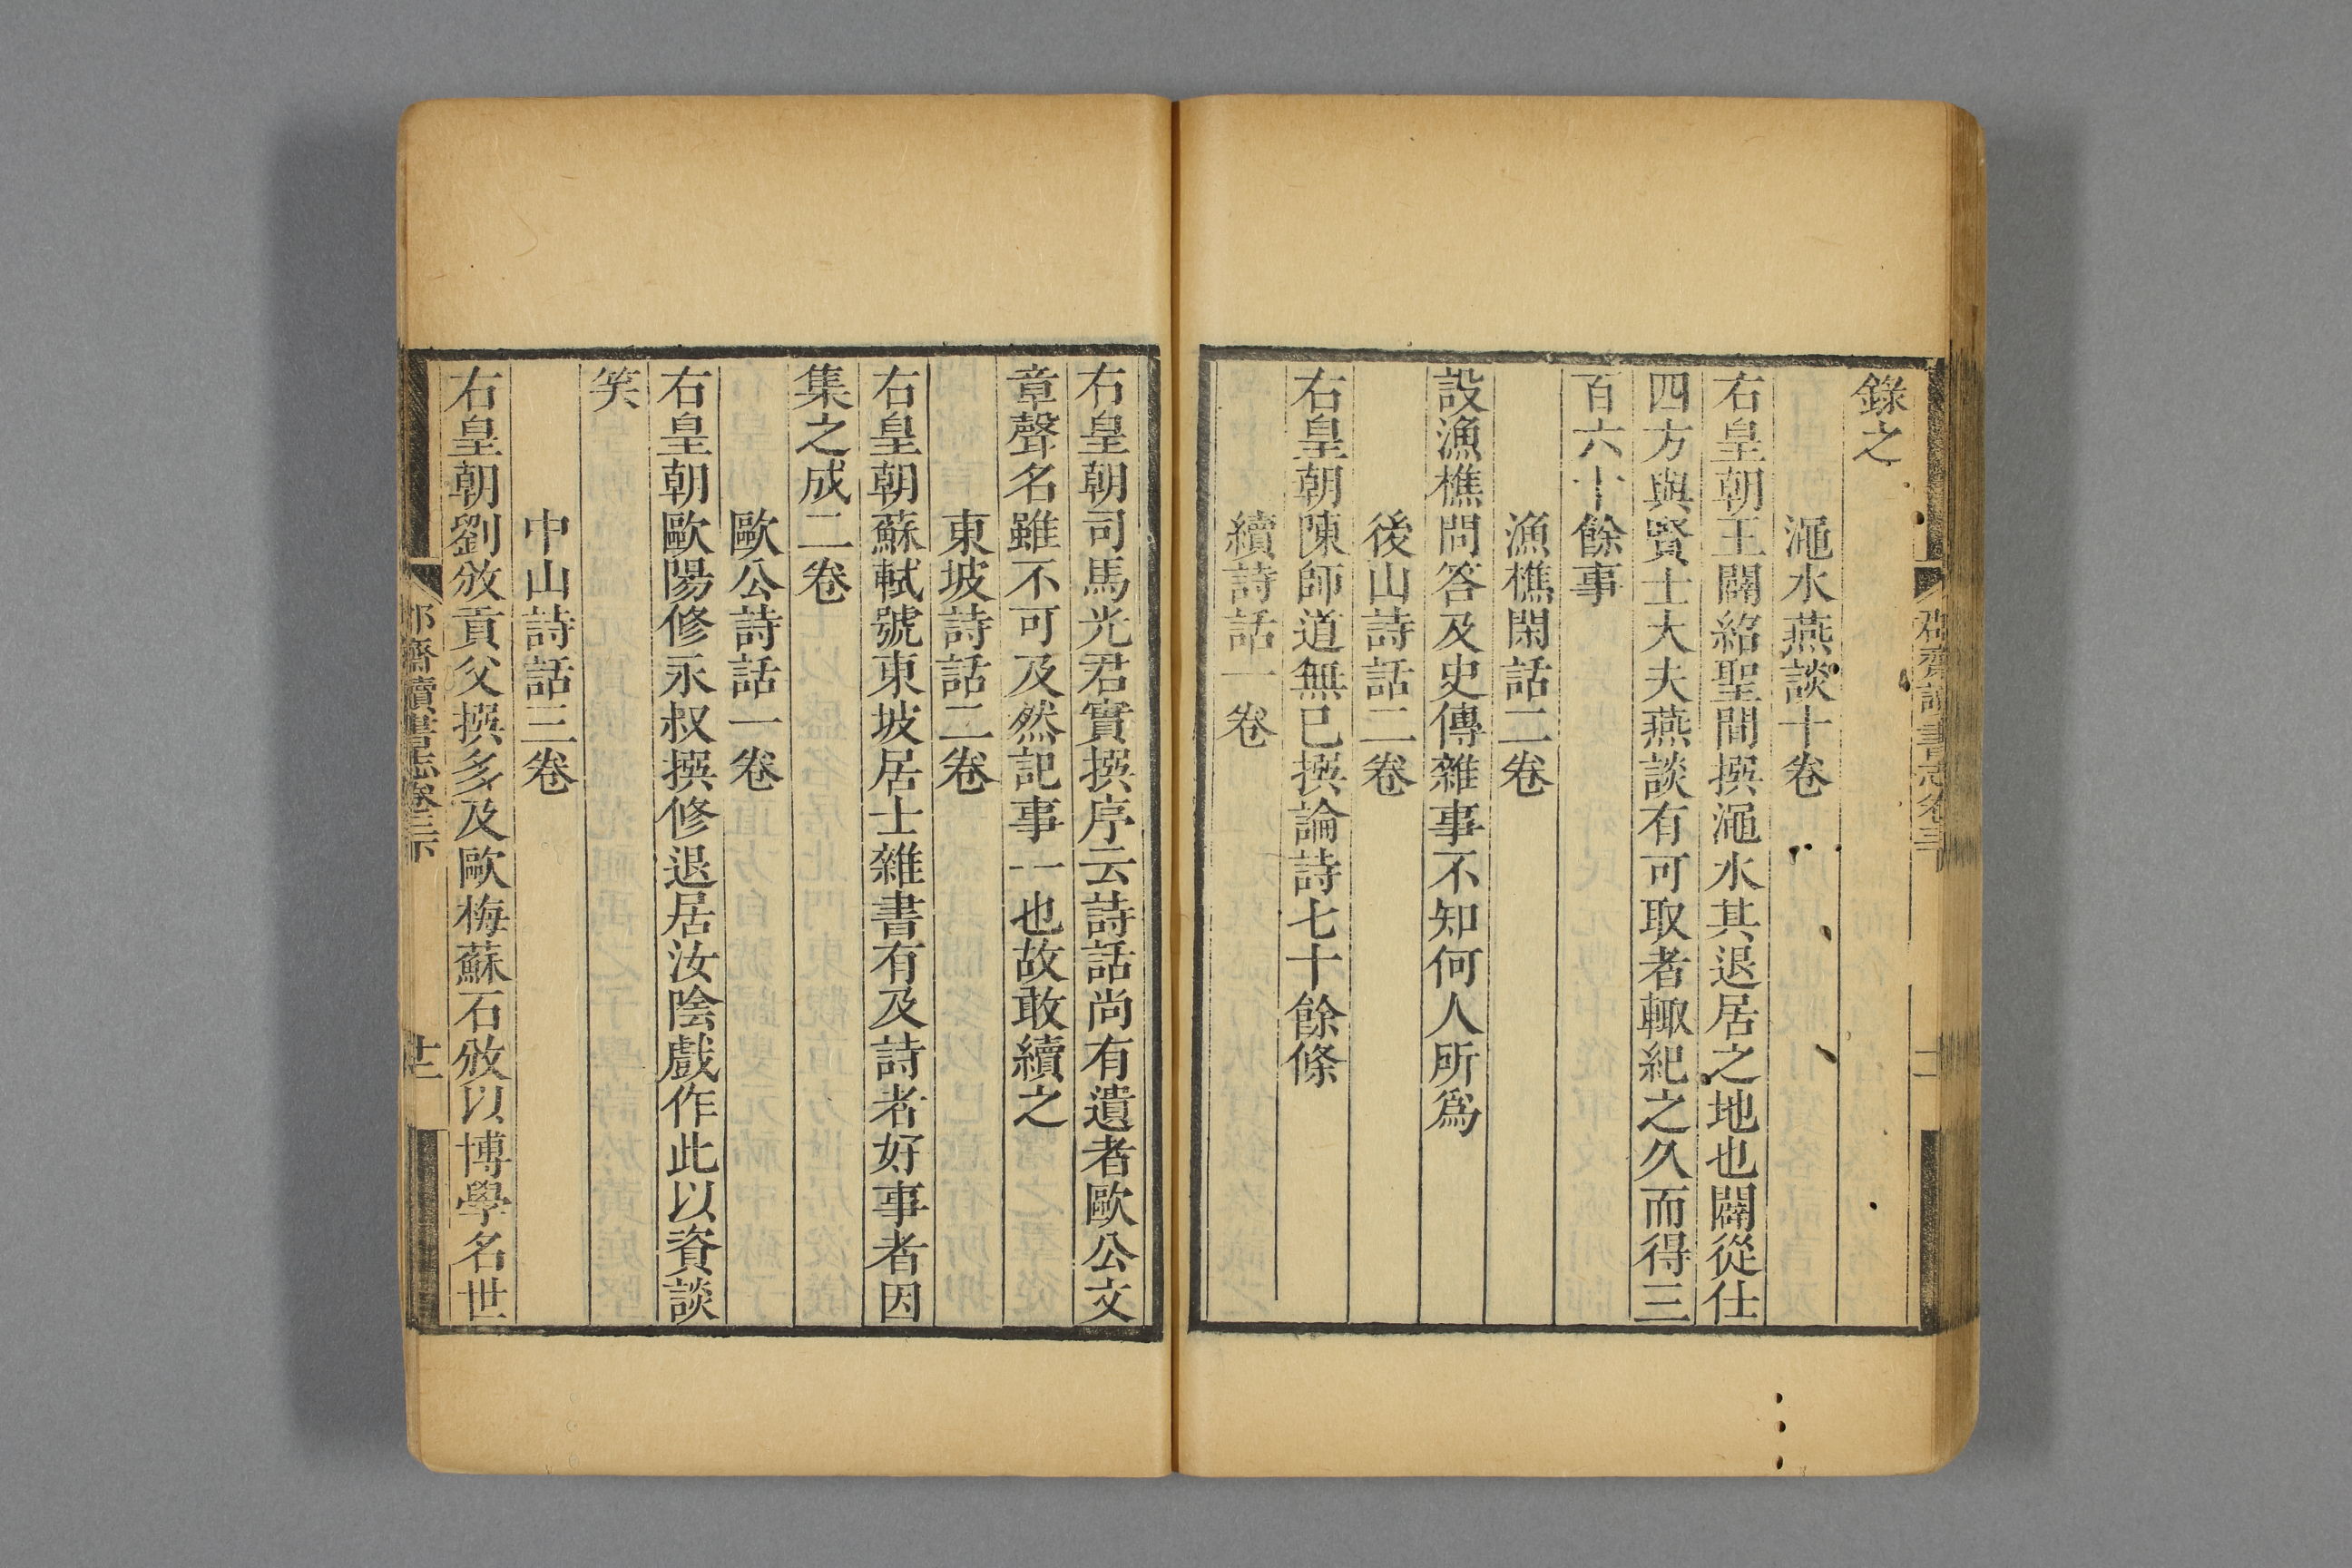 錄之
澠水燕談十卷
右皇朝王闢紹聖間撰澠水其退居之地也闢從仕
四方與賢士大夫燕談有可取者輙紀之久而得三
百六十餘事
漁樵閑話二卷
設漁樵問答及史傳雜事不知何人所爲
後山詩話二卷
右皇朝陳師道無已撰論詩七十餘條
續詩話一卷
右皇朝司馬光君實撰序云詩話尚有遺者歐公文
章聲名雖不可及然記事一也故敢續之
東坡詩話二卷
右皇朝蘇軾號東坡居士雜書有及詩者好事者因
集之成二卷
歐公詩話一卷
右皇朝歐陽修永叔撰修退居汝陰戲作此以資談
笑
中山詩話三卷
右皇朝劉攽貢父撰多及歐梅蘇石攽以博學名世
郡齋讀書志卷三下